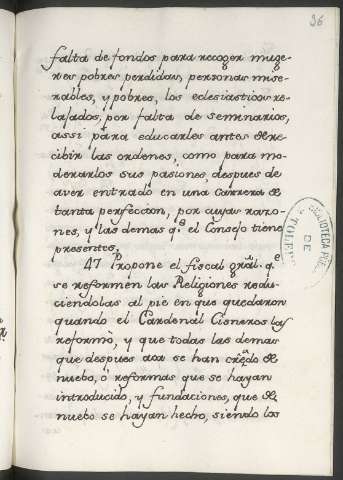 36
falta de fondos para recoger muge-
res pobres perdidas, personas mise-
rables, y pobres, los eclesiasticos re-
lajados, por falta de seminarios,
assi para educarles antes de re-
cibir las ordenes, como para mo-
derarlos sus pasiones, despues de
aver entrado en una carrera de
tanta perfeccion, por cuyas razo-
nes, y las demas q.e el Consejo tiene
presentes.
47 Propone el fiscal gral. q.e
se reformen las Religiones redu-
ciendolas al pie en que quedaron
quando el Cardenal Cisneros las
reformo, y que todas las demas
que despues aca se han creado de
nuebo, ó reformas que se hayan
introducido, y fundaciones, que de
nuebo se hayan hecho, siendo los
BIBLIOTECA
DE
TOLEDO